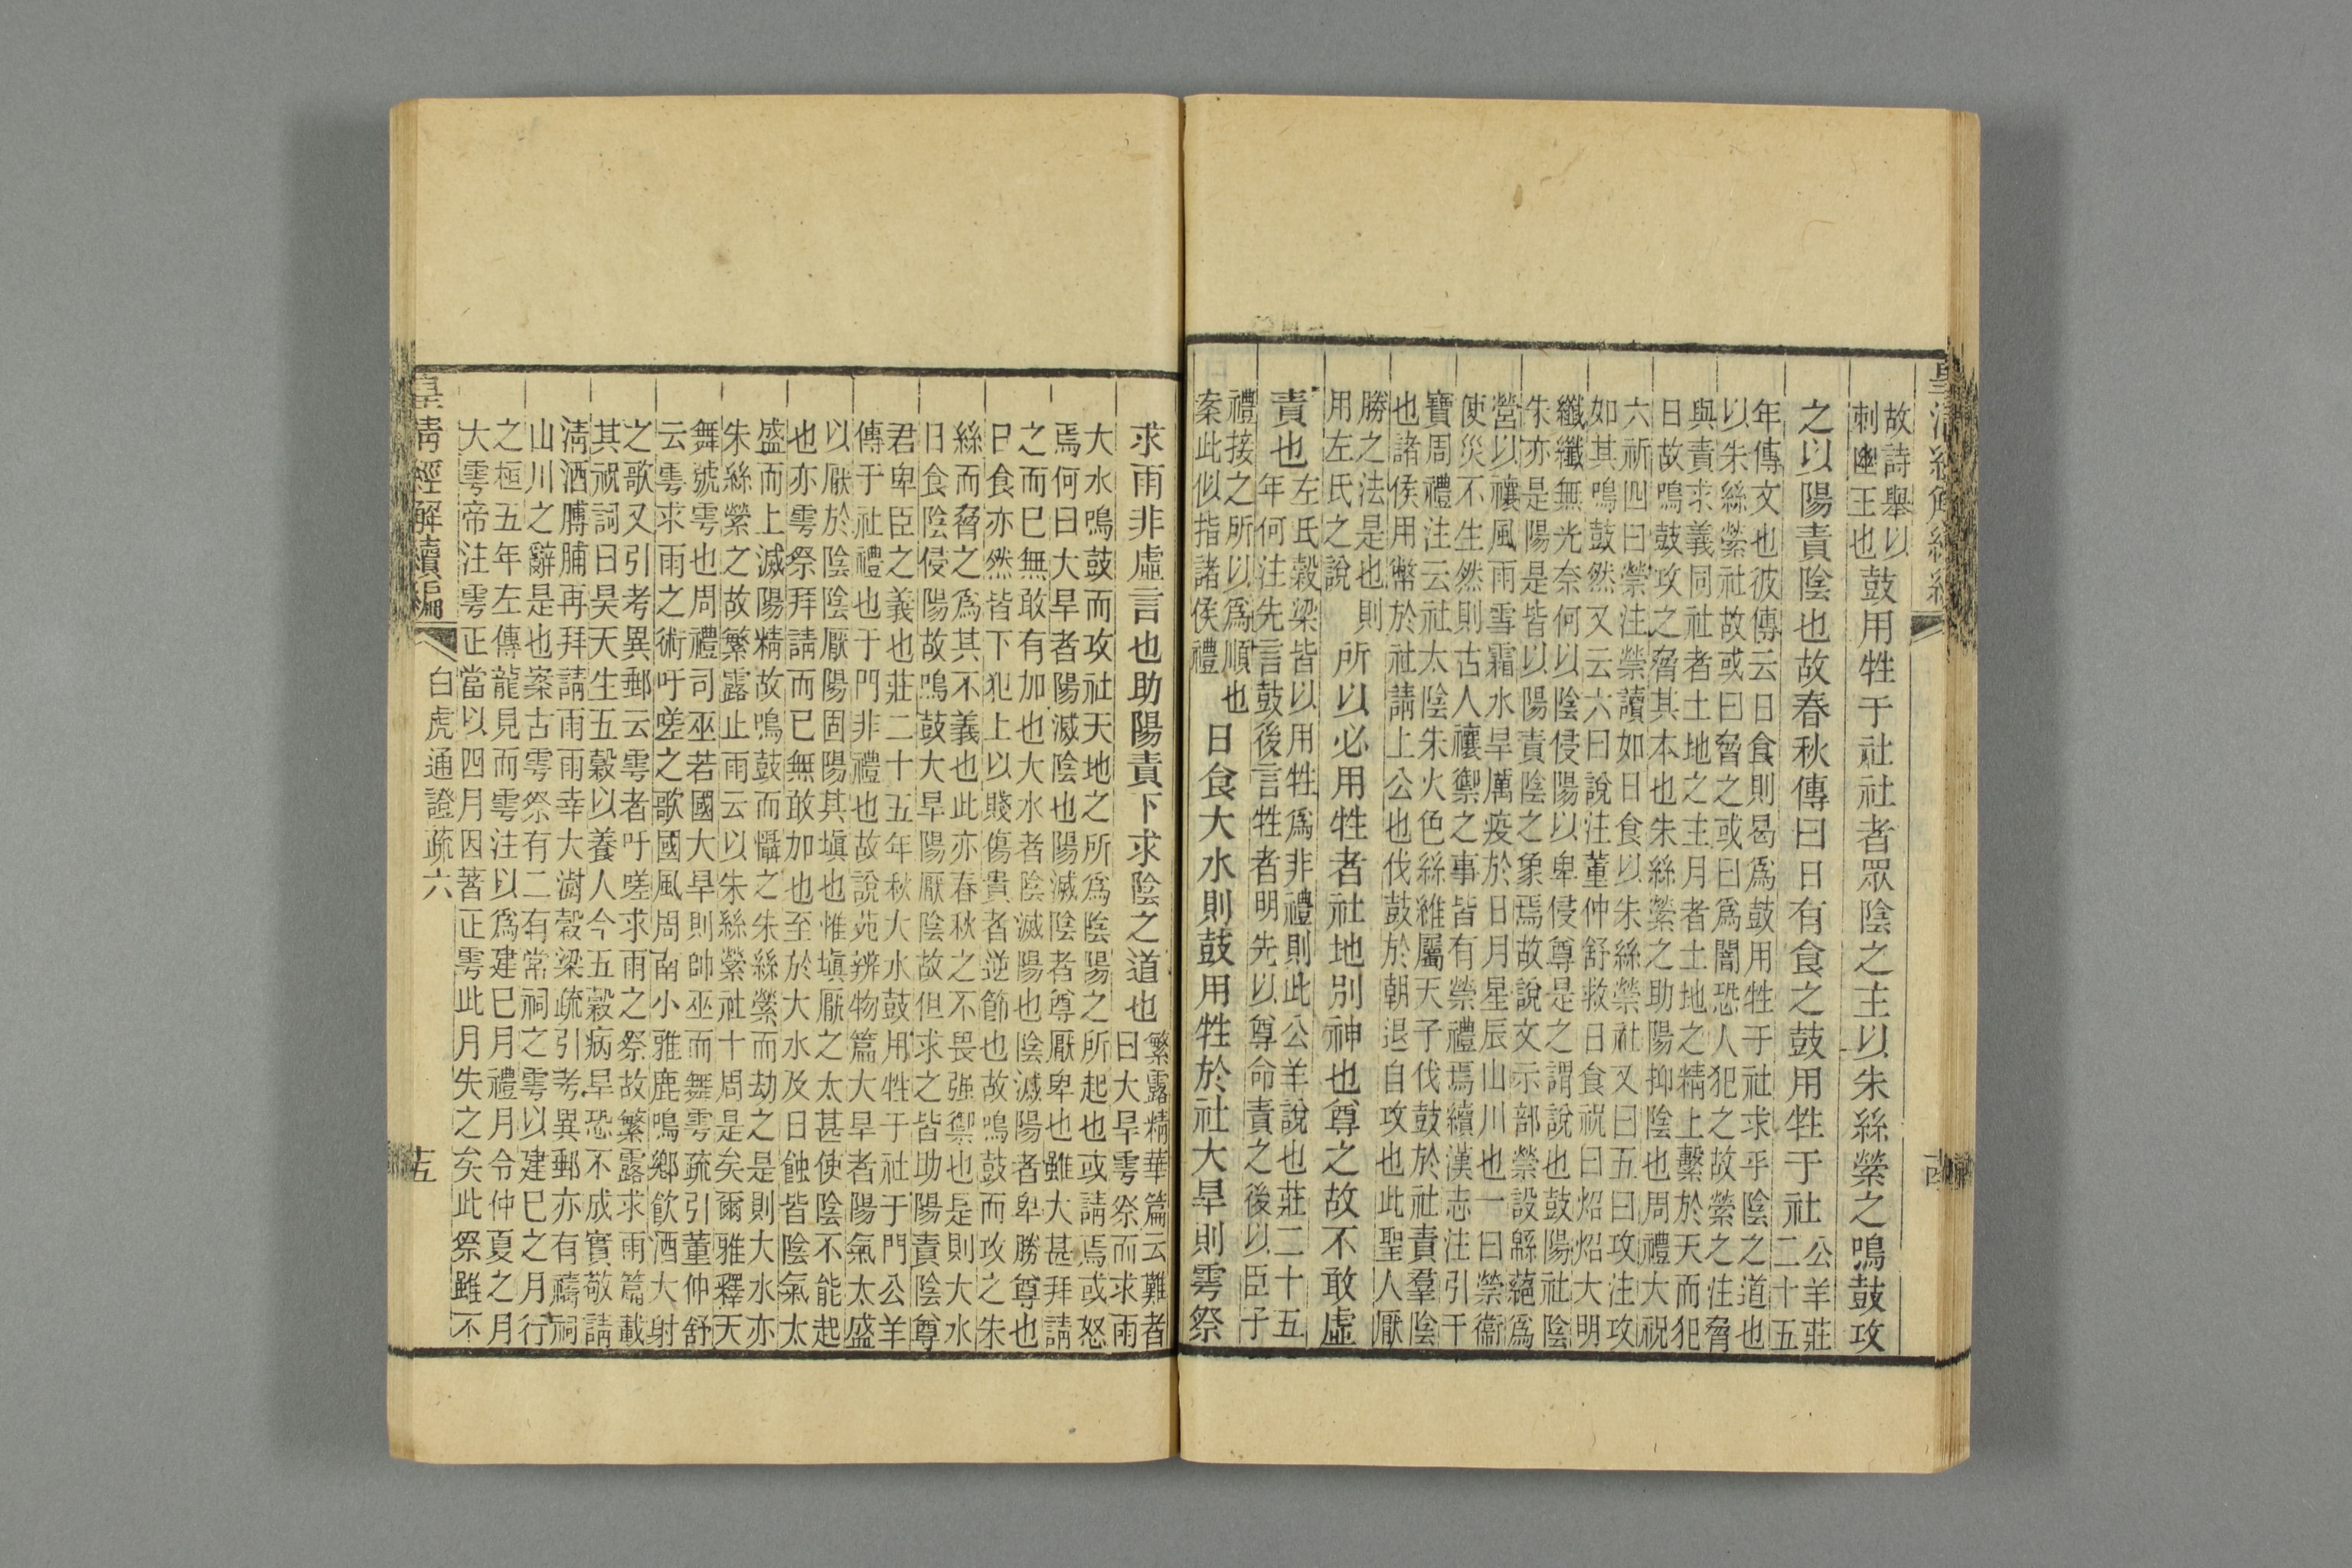 故詩舉以
刺幽王也
鼓用牲于社社者眾陰之主以朱絲縈之鳴鼓攻
之以陽責陰也故春秋傳曰日有食之鼓用牲于社
公羊莊
二十五
年傳文也彼傳云日食則曷爲鼓用牲于社求乎陰之道也
以朱絲縈社故或曰脅之或曰爲闇恐人犯之故縈之注脅
與責求義同社者土地之主月者土地之精上繫於天而犯
日故鳴鼓攻之脅其本也朱絲縈之助陽抑陰也周禮大祝
六祈四曰禜注禜讀如日食以朱絲禜社又曰五曰攻注攻
如其鳴鼓然又云六曰說注董仲舒救日食祝曰炤炤大明
纖纖無光奈何以陰侵陽以卑侵尊是之謂說也鼓陽社陰
朱亦是陽是皆以陽責陰之象焉故說文示部禜設緜蕝爲
營以禳風雨雪霜水旱厲疫於日月星辰山川也一曰禜衞
使災不生然則古人禳禦之事皆有禜禮焉續漢志注引干
寶周禮注云社太陰朱火色絲維屬天子伐鼓於社責羣陰
也諸侯用幣於社請上公也伐鼓於朝退自攻也此聖人厭
勝之法是也則
用左氏之說
所以必用牲者社地別神也尊之故不敢虛
責也
左氏穀梁皆以用牲爲非禮則此公羊說也莊二十五
年何注先言鼓後言牲者明先以尊命責之後以臣子
禮接之所以爲順也
案此似指諸侯禮
日食大水則鼓用牲於社大旱則雩祭
求雨非虛言也助陽責下求陰之道也
繁露精華篇云難者
曰大旱雩祭而求雨
大水鳴鼓而攻社天地之所爲陰陽之所起也或請焉或怒
焉何曰大旱者陽滅陰也陽滅陰者尊厭卑也雖大甚拜請
之而已無敢有加也大水者陰滅陽也陰滅陽者卑勝尊也
日食亦然皆下犯上以賤傷貴者逆節也故鳴鼓而攻之朱
絲而脅之爲其不義也此亦春秋之不畏强禦也是則大水
日食陰侵陽故鳴鼓大旱陽厭陰故但求之皆助陽責陰尊
君卑臣之義也莊二十五年秋大水鼓用牲于社于門公羊
傳于社禮也于門非禮也故說苑辨物篇大旱者陽氣太盛
以厭於陰陰厭陽固陽其塡也惟塡厭之太甚使陰不能起
也亦雩祭拜請而已無敢加也至於大水及日蝕皆陰氣太
盛而上滅陽精故鳴鼓而懾之朱絲縈而劫之是則大水亦
朱絲縈之故繁露止雨云以朱絲縈社十周是矣爾雅釋天
舞號雩也周禮司巫若國大旱則帥巫而舞雩疏引董仲舒
云雩求雨之術吁嗟之歌國風周南小雅鹿鳴鄉飲酒大射
之歌又引考異郵云雩者吁嗟求雨之祭故繁露求雨篇載
其祝詞曰昊天生五穀以養人今五穀病旱恐不成實敬請
清酒膊脯再拜請雨雨幸大澍穀梁疏引考異郵亦有禱祠
山川之辭是也案古雩祭有二有常祠之雩以建巳之月行
之桓五年左傳龍見而雩注以爲建巳月禮月令仲夏之月
大雩帝注雩正當以四月因著正雩此月失之矣此祭雖不
皇清經解續編
白虎通證疏六
十五